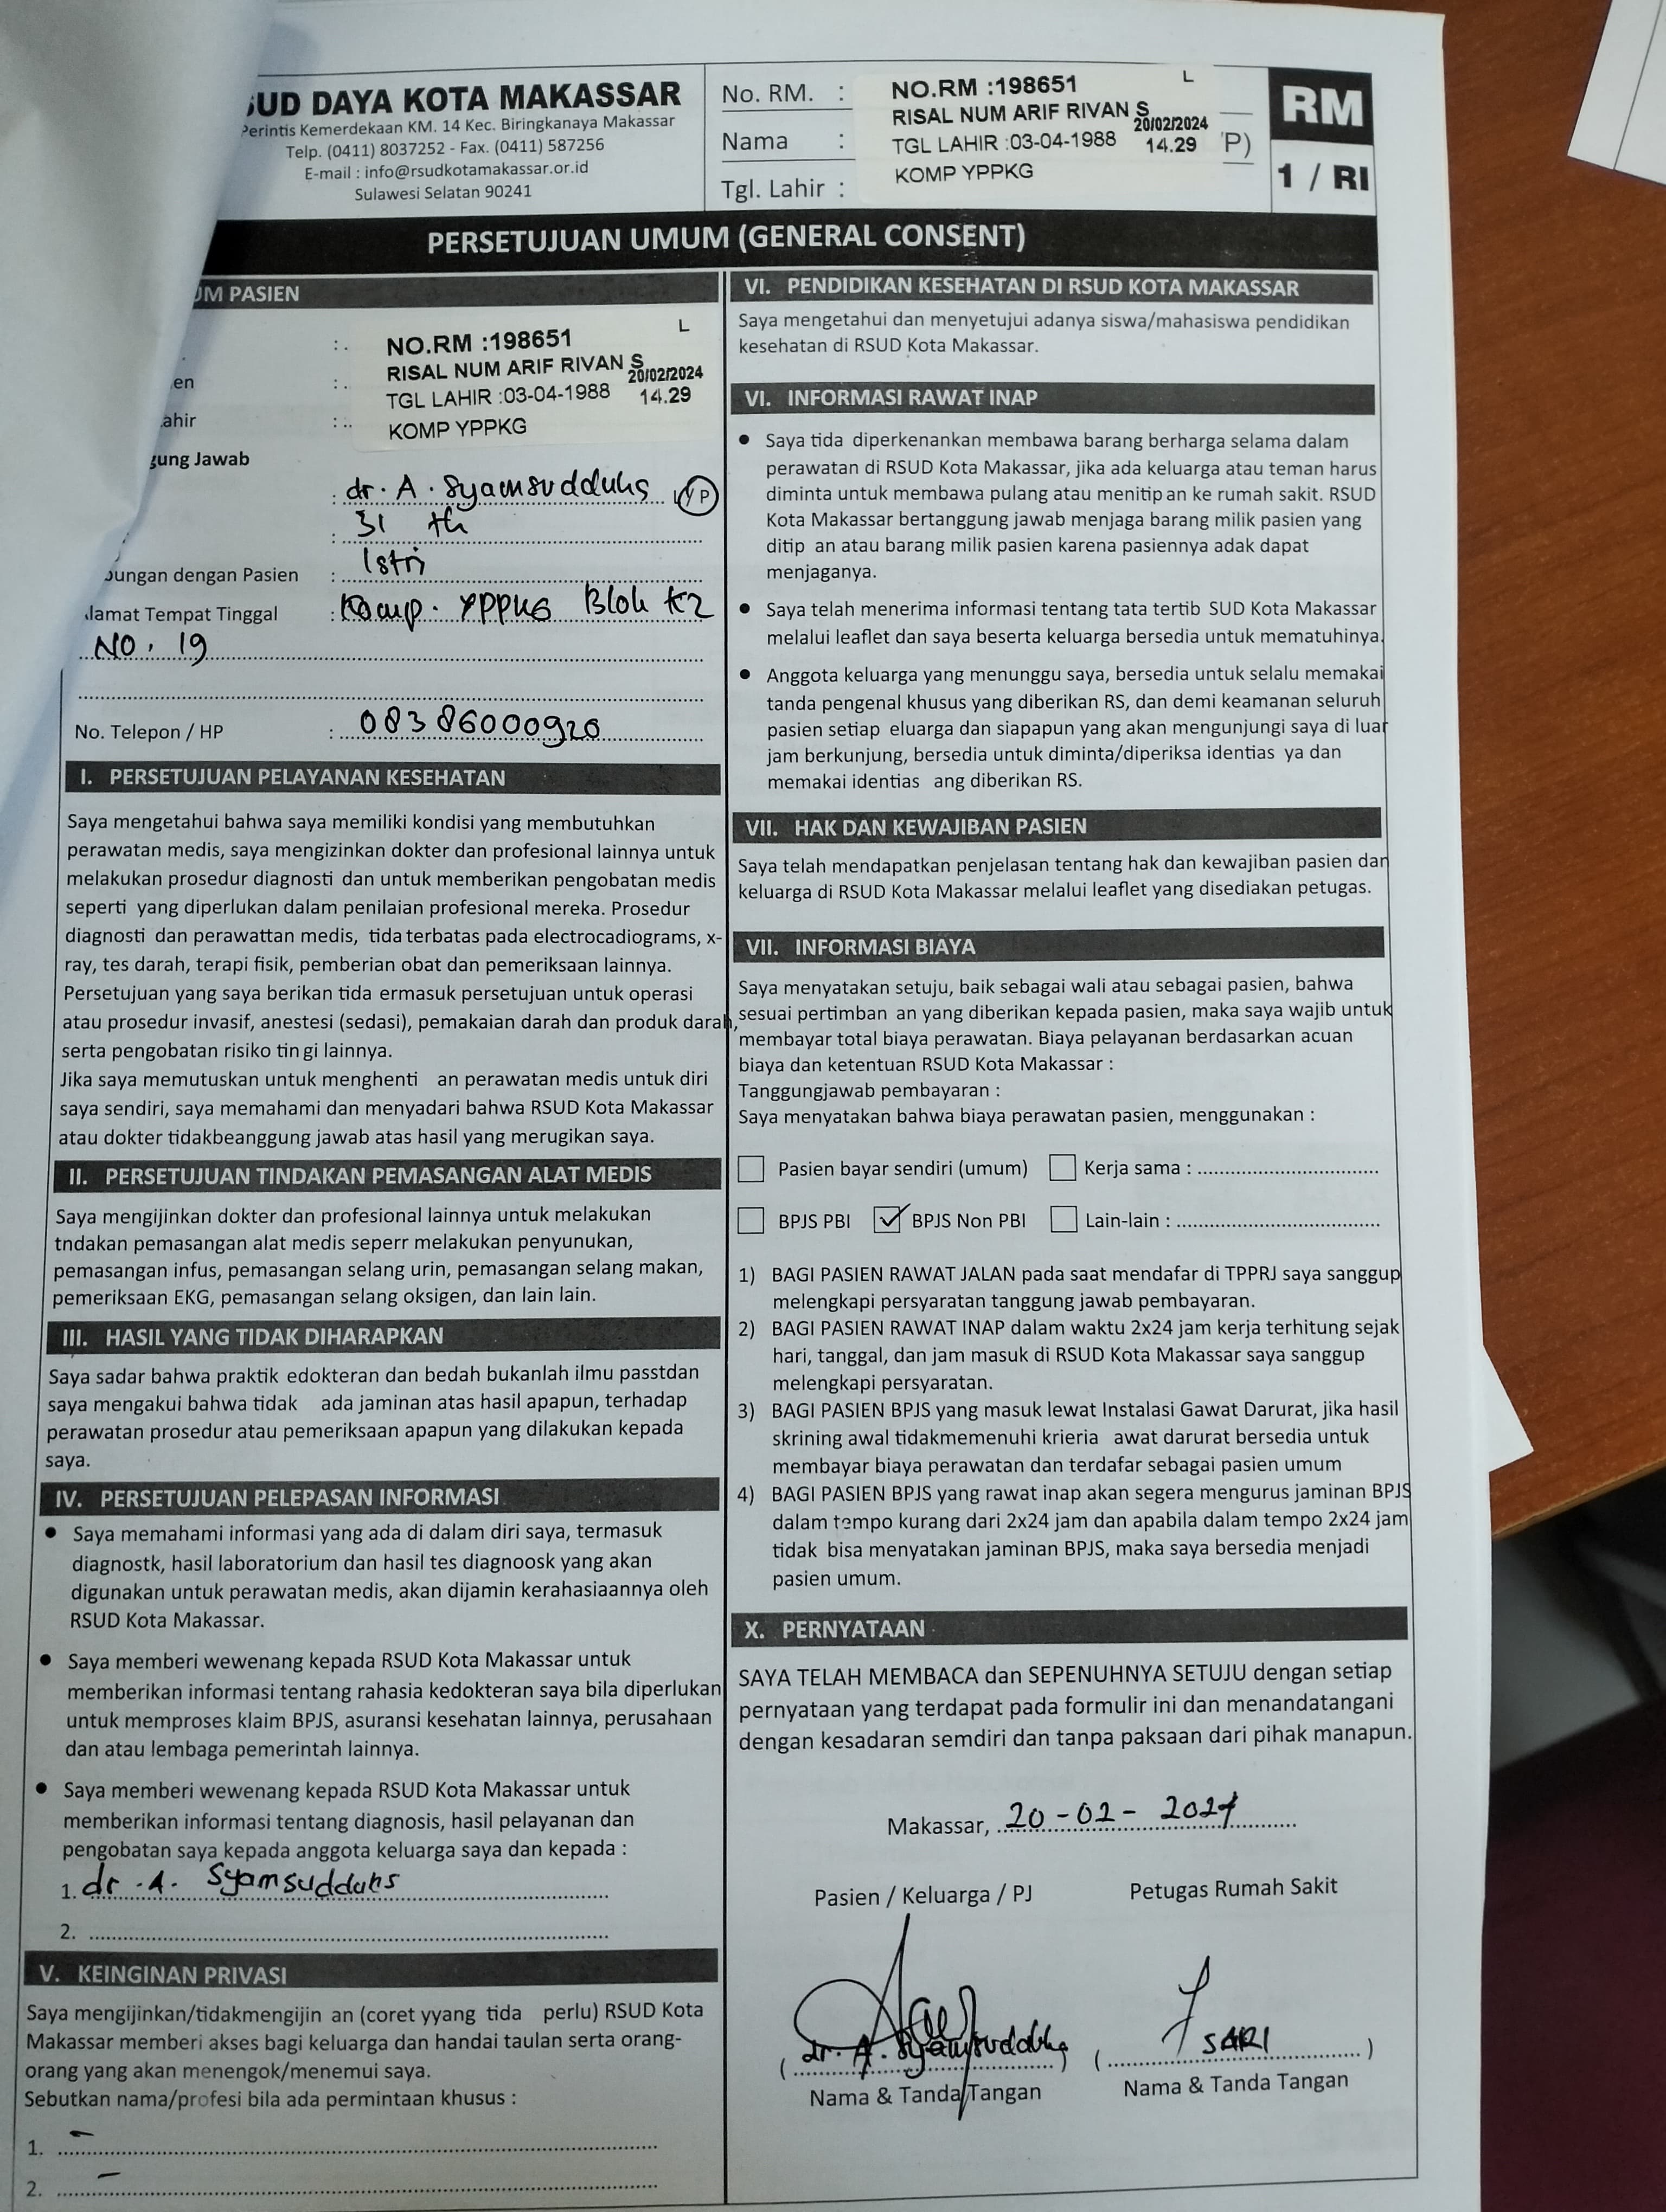 SUD DAYA KOTA MAKASSAR
Perintis Kemerdekaan KM. 14 Kec. Biringkanaya Makassar
Telp. (0411) 8037252 - Fax. (0411) 587256
E-mail : info@rsudkotamakassar.or.id
Sulawesi Selatan 90241
No. RM. :
Nama :
Tgl. Lahir :
NO.RM :198651 L
RISAL NUM ARIF RIVAN S
20/02/2024
TGL LAHIR :03-04-1988 14.29
KOMP YPPKG
P)
RM
1 / RI
PERSETUJUAN UMUM (GENERAL CONSENT)
UM PASIEN
en
ahir
NO.RM :198651 L
RISAL NUM ARIF RIVAN S
20/02/2024
TGL LAHIR :03-04-1988 14.29
KOMP YPPKG
gung Jawab
: dr. A. Syamsudduhs L/P
: 31 th
bungan dengan Pasien : Istri
lamat Tempat Tinggal : Komp. YPPKG Blok K2
NO. 19
No. Telepon / HP : 08386000920
I. PERSETUJUAN PELAYANAN KESEHATAN
Saya mengetahui bahwa saya memiliki kondisi yang membutuhkan
perawatan medis, saya mengizinkan dokter dan profesional lainnya untuk
melakukan prosedur diagnosti dan untuk memberikan pengobatan medis
seperti yang diperlukan dalam penilaian profesional mereka. Prosedur
diagnosti dan perawattan medis, tida terbatas pada electrocadiograms, x-
ray, tes darah, terapi fisik, pemberian obat dan pemeriksaan lainnya.
Persetujuan yang saya berikan tida ermasuk persetujuan untuk operasi
atau prosedur invasif, anestesi (sedasi), pemakaian darah dan produk darah,
serta pengobatan risiko tin gi lainnya.
Jika saya memutuskan untuk menghenti an perawatan medis untuk diri
saya sendiri, saya memahami dan menyadari bahwa RSUD Kota Makassar
atau dokter tidakbeanggung jawab atas hasil yang merugikan saya.
II. PERSETUJUAN TINDAKAN PEMASANGAN ALAT MEDIS
Saya mengijinkan dokter dan profesional lainnya untuk melakukan
tndakan pemasangan alat medis seperr melakukan penyunukan,
pemasangan infus, pemasangan selang urin, pemasangan selang makan,
pemeriksaan EKG, pemasangan selang oksigen, dan lain lain.
III. HASIL YANG TIDAK DIHARAPKAN
Saya sadar bahwa praktik edokteran dan bedah bukanlah ilmu passtdan
saya mengakui bahwa tidak ada jaminan atas hasil apapun, terhadap
perawatan prosedur atau pemeriksaan apapun yang dilakukan kepada
saya.
IV. PERSETUJUAN PELEPASAN INFORMASI
● Saya memahami informasi yang ada di dalam diri saya, termasuk
diagnostk, hasil laboratorium dan hasil tes diagnoosk yang akan
digunakan untuk perawatan medis, akan dijamin kerahasiaannya oleh
RSUD Kota Makassar.
● Saya memberi wewenang kepada RSUD Kota Makassar untuk
memberikan informasi tentang rahasia kedokteran saya bila diperlukan
untuk memproses klaim BPJS, asuransi kesehatan lainnya, perusahaan
dan atau lembaga pemerintah lainnya.
● Saya memberi wewenang kepada RSUD Kota Makassar untuk
memberikan informasi tentang diagnosis, hasil pelayanan dan
pengobatan saya kepada anggota keluarga saya dan kepada :
1. dr. A. Syamsudduhs
2.
V. KEINGINAN PRIVASI
Saya mengijinkan/tidakmengijin an (coret yyang tida perlu) RSUD Kota
Makassar memberi akses bagi keluarga dan handai taulan serta orang-
orang yang akan menengok/menemui saya.
Sebutkan nama/profesi bila ada permintaan khusus :
1. -
2. -
VI. PENDIDIKAN KESEHATAN DI RSUD KOTA MAKASSAR
Saya mengetahui dan menyetujui adanya siswa/mahasiswa pendidikan
kesehatan di RSUD Kota Makassar.
VI. INFORMASI RAWAT INAP
● Saya tida diperkenankan membawa barang berharga selama dalam
perawatan di RSUD Kota Makassar, jika ada keluarga atau teman harus
diminta untuk membawa pulang atau menitip an ke rumah sakit. RSUD
Kota Makassar bertanggung jawab menjaga barang milik pasien yang
ditip an atau barang milik pasien karena pasiennya adak dapat
menjaganya.
● Saya telah menerima informasi tentang tata tertib SUD Kota Makassar
melalui leaflet dan saya beserta keluarga bersedia untuk mematuhinya.
● Anggota keluarga yang menunggu saya, bersedia untuk selalu memakai
tanda pengenal khusus yang diberikan RS, dan demi keamanan seluruh
pasien setiap eluarga dan siapapun yang akan mengunjungi saya di luar
jam berkunjung, bersedia untuk diminta/diperiksa identias ya dan
memakai identias ang diberikan RS.
VII. HAK DAN KEWAJIBAN PASIEN
Saya telah mendapatkan penjelasan tentang hak dan kewajiban pasien dan
keluarga di RSUD Kota Makassar melalui leaflet yang disediakan petugas.
VII. INFORMASI BIAYA
Saya menyatakan setuju, baik sebagai wali atau sebagai pasien, bahwa
sesuai pertimban an yang diberikan kepada pasien, maka saya wajib untuk
membayar total biaya perawatan. Biaya pelayanan berdasarkan acuan
biaya dan ketentuan RSUD Kota Makassar :
Tanggungjawab pembayaran :
Saya menyatakan bahwa biaya perawatan pasien, menggunakan :
☐ Pasien bayar sendiri (umum) ☐ Kerja sama :
☐ BPJS PBI ☑ BPJS Non PBI ☐ Lain-lain :
1) BAGI PASIEN RAWAT JALAN pada saat mendafar di TPPRJ saya sanggup
melengkapi persyaratan tanggung jawab pembayaran.
2) BAGI PASIEN RAWAT INAP dalam waktu 2x24 jam kerja terhitung sejak
hari, tanggal, dan jam masuk di RSUD Kota Makassar saya sanggup
melengkapi persyaratan.
3) BAGI PASIEN BPJS yang masuk lewat Instalasi Gawat Darurat, jika hasil
skrining awal tidakmemenuhi krieria awat darurat bersedia untuk
membayar biaya perawatan dan terdafar sebagai pasien umum
4) BAGI PASIEN BPJS yang rawat inap akan segera mengurus jaminan BPJS
dalam tempo kurang dari 2x24 jam dan apabila dalam tempo 2x24 jam
tidak bisa menyatakan jaminan BPJS, maka saya bersedia menjadi
pasien umum.
X. PERNYATAAN
SAYA TELAH MEMBACA dan SEPENUHNYA SETUJU dengan setiap
pernyataan yang terdapat pada formulir ini dan menandatangani
dengan kesadaran semdiri dan tanpa paksaan dari pihak manapun.
Makassar, 20-02-2024
Pasien / Keluarga / PJ Petugas Rumah Sakit
( dr. A. Syamsudduhs ) ( SARI )
Nama & Tanda Tangan Nama & Tanda Tangan